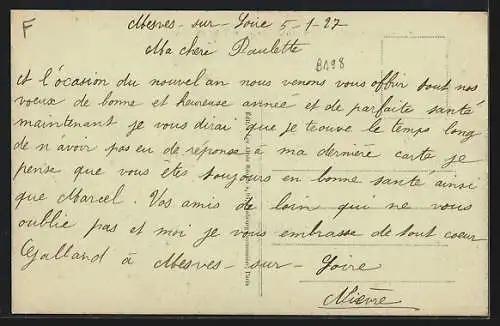 F
Mesves - sur - Loire 5-1-27
Ma cheri Paulette
B198
A l'ócasion du nouvel an nous venons vous offrir tout nos
voeux de bonne et heureuse année et de parfaite santé
maintenant je vous dirai que je trouve le temps long
de n'avoir pas eu de reponse à ma dernière carte je
pense que vous êtes toujours en bonne santé ainsi
que Marcel. Vos amis de loin qui ne vous
oublie pas et moi je vous embrasse de tout coeur
Galland à Mesves - sur - Loire
Nièvre